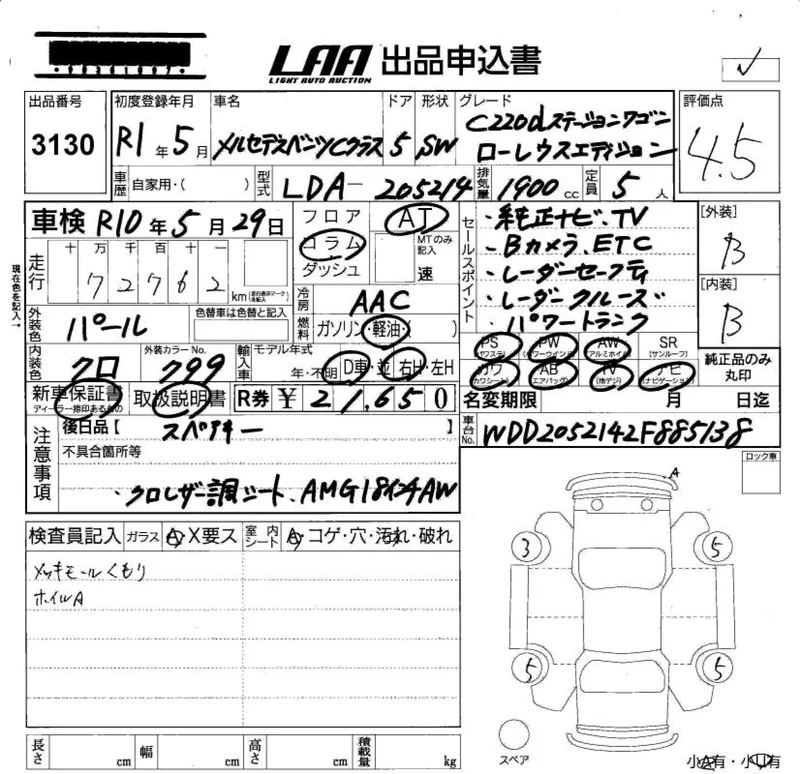 LAA 出品申込書
LIGHT AUTO AUCTION
出品番号 初度登録年月 車名 ドア 形状 グレード 評価点
3130 R1年5月 メルセデスベンツCクラス 5 SW C220dステーションワゴン
ローレウスエディション 4.5
車歴 自家用・( ) 型式 LDA-205214 排気量 1900cc 定員 5人
車検 R10年5月29日 フロア コラム ダッシュ AT MTのみ記入 速
セールスポイント
・純正ナビ、TV
・Bカメラ、ETC
・レーダーセーフティ
・レーダークルーズ
・パワートランク
[外装] B
[内装] B
現在色を記入
走行 十 万 千 百 十 一
72762 km
冷房 AAC
外装色 パール 色替車は色替と記入 燃料 ガソリン・軽油・( )
内装色 クロ 外装カラーNo. 799 輸入車 モデル年式 年・不明 D車・並 右H・左H
PS (パワステ) PW (パワーウインド) AW (アルミホイル) SR (サンルーフ)
カワ (カワシート) AB (エアバッグ) TV (地デジ) ナビ (ナビゲーション)
純正品のみ丸印
新車保証書 ディーラー捺印あるもの 取扱説明書 R券 ¥21,650 名変期限 月 日迄
注意事項 後日品【 スペアキー 】 車台No. WDD2052142F885138
不具合箇所等
・クロレザー調シート、AMG18インチAW
ロック車
検査員記入 ガラス A X要ス 室内シート A・コゲ・穴・汚れ・破れ
メッキモールくもり
ホイルA
A
3 5
5 5
スペア
長さ cm 幅 cm 高さ cm 積載量 kg
小A有・小U有